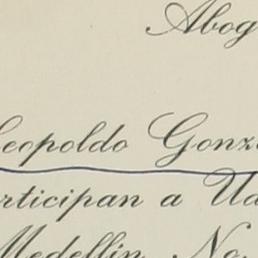 Abog
Leopoldo Gonz
rticipan a Ud
Medellin, No